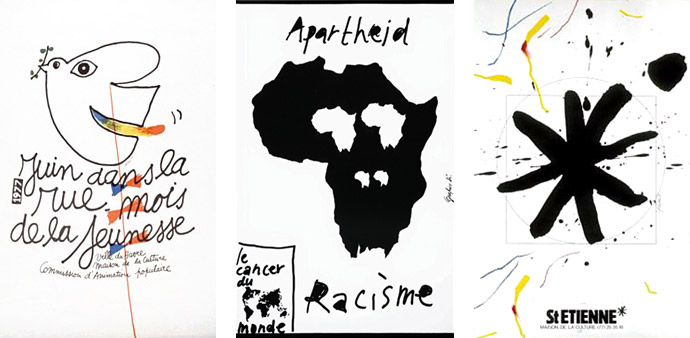 1977
Juin dans la
rue. mois
de la jeunesse
Ville du Havre
Maison de la Culture
Commission d'Animation populaire
Apartheid
le
cancer
du
monde
Racisme
St ETIENNE*
MAISON DE LA CULTURE